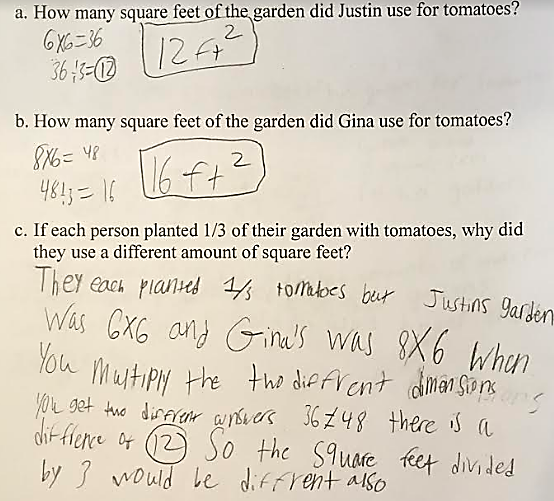 a. How many square feet of the garden did Justin use for tomatoes?
6X6=36
36÷3=12
12 ft²
b. How many square feet of the garden did Gina use for tomatoes?
8X6= 48
48÷3= 16
16 ft²
c. If each person planted 1/3 of their garden with tomatoes, why did
they use a different amount of square feet?
They each planted 1/3 tomatoes but Justins garden
Was 6X6 and Gina's was 8X6 When
You Multiply the two diffrent dimensions
You get two diffrent answers 36≠48 there is a
diffrence of 12 So the square feet divided
by 3 would be diffrent also